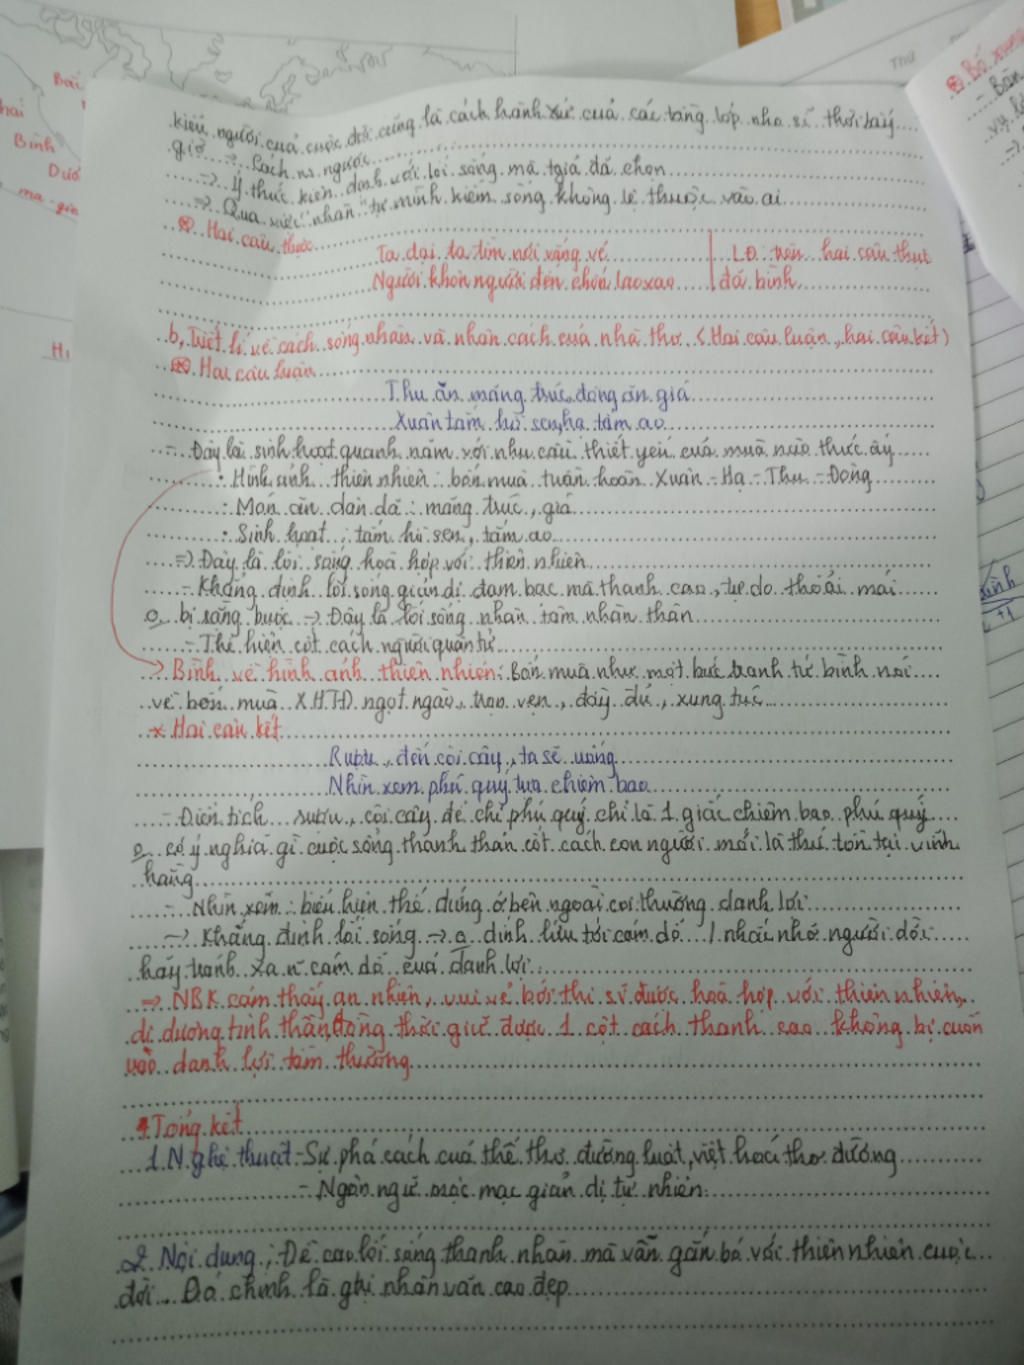 kiểu người của cuộc đời cũng là cách hành xử của các tầng lớp nho sĩ thời bấy
giờ → Cách ns ngược
→ Ý thức kiên định với lối sống mà tgiả đã chọn
⇒ Qua việc "nhàn" tự mình kiếm sống không lệ thuộc vào ai
⊗ Hai câu thực
Ta dại ta tìm nơi vắng vẻ
Người khôn người đến chốn lao xao
LĐ: trên hai câu thực
đã bình
b, Triết lí về cách sống nhàn và nhân cách của nhà thơ (Hai câu luận, hai câu kết)
⊗ Hai câu luận
Thu ăn măng trúc đông ăn giá
Xuân tắm hồ sen, hạ tắm ao
- Đây là sinh hoạt quanh năm với nhu cầu thiết yếu của mùa nào thức ấy
• Hình ảnh thiên nhiên: bốn mùa tuần hoàn Xuân - Hạ - Thu - Đông
• Món ăn dân dã: măng trúc, giá
• Sinh hoạt: tắm hồ sen, tắm ao
⇒ Đây là lối sống hoà hợp với thiên nhiên
- Khẳng định lối sống giản dị đạm bạc mà thanh cao, tự do thoải mái
o bị ràng buộc → Đây là lối sống nhàn tâm nhàn thân
- Thể hiện cốt cách người quân tử
→ Bình về hình ảnh thiên nhiên: Bốn mùa như một bức tranh tứ bình nói
về bốn mùa X.H.T.Đ ngọt ngào, trọn vẹn, đầy đủ, xung túc
x Hai câu kết
Rượu, đến cội cây, ta sẽ uống
Nhìn xem phú quý tựa chiêm bao
- Điển tích rượu, cội cây để chỉ phú quý chỉ là 1 giấc chiêm bao phú quý
o có ý nghĩa gì cuộc sống thanh thản cốt cách con người mới là thứ tồn tại vĩnh
hằng
- Nhìn xem: biểu hiện thế đứng ở bên ngoài coi thường danh lợi
→ Khẳng định lối sống → o dính líu tới cám dỗ / nhắc nhở người đời
hãy tránh xa n~ cám dỗ của danh lợi
⇒ NBK cảm thấy an nhiên, vui vẻ bởi thi sĩ được hoà hợp với thiên nhiên,
di dưỡng tinh thần, đồng thời giữ được 1 cốt cách thanh cao không bị cuốn
vào danh lợi tầm thường
4. Tổng kết
1. Nghệ thuật - Sự phá cách của thể thơ đường luật, việt hoá thơ đường
- Ngôn ngữ mộc mạc giản dị tự nhiên
2. Nội dung: Đề cao lối sống thanh nhàn mà vẫn gắn bó với thiên nhiên cuộc
đời. Đó chính là gtrị nhân văn cao đẹp